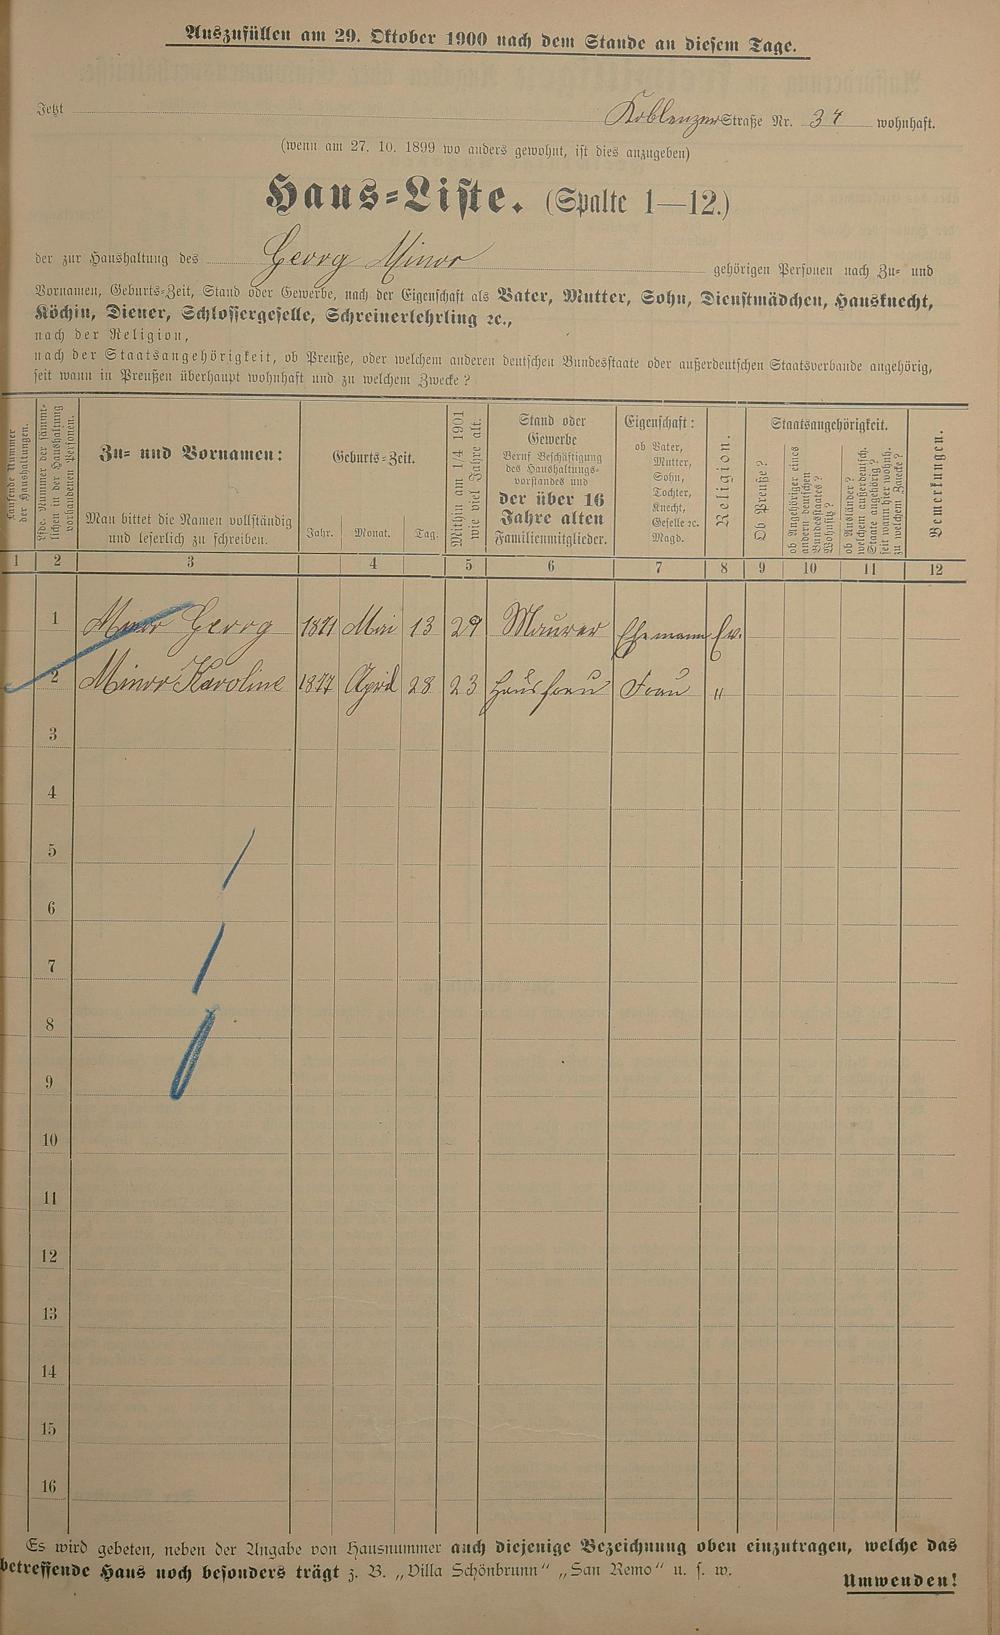 Auszufüllen am 29. Oktober 1900 nach dem Stande an diesem Tage.
Jetzt Koblenzer Straße Nr. 34 wohnhaft.
(wenn am 27. 10. 1899 wo anders gewohnt, ist dies anzugeben)
Haus-Liste. (Spalte 1—12.)
der zur Haushaltung des Georg Minor gehörigen Personen nach Zu- und
Vornamen, Geburts-Zeit, Stand oder Gewerbe, nach der Eigenschaft als Vater, Mutter, Sohn, Dienstmädchen, Hausknecht,
Köchin, Diener, Schlossergeselle, Schreinerlehrling ꝛc.,
nach der Religion,
nach der Staatsangehörigkeit, ob Preuße, oder welchem anderen deutschen Bundesstaate oder außerdeutschen Staatsverbande angehörig,
seit wann in Preußen überhaupt wohnhaft und zu welchem Zwecke?
Laufende Nummer
der Haushaltungen.
Lfde. Nummer der sämmt-
lichen in der Haushaltung
vorhandenen Personen.
Zu- und Vornamen:
Man bittet die Namen vollständig
und leserlich zu schreiben.
Geburts-Zeit.
Jahr. Monat. Tag.
Mithin am 1/4 1901
wie viel Jahre alt.
Stand oder
Gewerbe
Beruf Beschäftigung
des Haushaltungs-
vorstandes und
der über 16
Jahre alten
Familienmitglieder.
Eigenschaft:
ob Vater,
Mutter,
Sohn,
Tochter,
Knecht,
Geselle ꝛc.
Magd.
Religion.
Staatsangehörigkeit.
Ob Preuße?
ob Angehöriger eines
andern deutschen
Bundesstaates?
Wohnsitz?
ob Ausländer?
welchem außerdeutsch.
Staate angehörig?
seit wann hier wohnh.
zu welchem Zwecke?
Bemerkungen.
1 2 3 4 5 6 7 8 9 10 11 12
1 Minor Georg 1871 Mai 13 29 Maurer Ehemann Ev.
2 Minor Karoline 1877 April 28 23 Hausfrau Frau "
3
4
5
6
7
8
9
10
11
12
13
14
15
16
Es wird gebeten, neben der Angabe von Hausnummer auch diejenige Bezeichnung oben einzutragen, welche das
betreffende Haus noch besonders trägt z. B. „Villa Schönbrunn" „San Remo" u. s. w.
Umwenden!